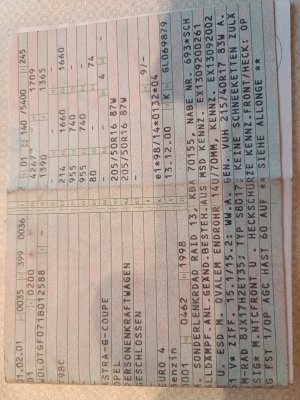 .02.01 0035 399 0036
01 0200
0L0TGF071B012588
98C
ASTRA-G-COUPE
OPEL
PERSONENKRAFTWAGEN
GESCHLOSSEN
EURO 4
Benzin
0001 0462 1998
01 140 /5400 245
4267 1709
1390 1365
214 1660 1660
955 740
955 740
80 74
4
205/50R16 87W
205/50R16 87W
97/-
e1*98/14*0132*04
13.12.00 K GL069879
SONDERLENKRAD RAID 13, KBA 70155, NABE NR. 693*SCH
DÄMPF.ANL.GEÄND.BESTEH.AUS MSD KENNZ. EX13092002
U. ESD M. OVALEM ENDROHR 140/70MM, KENNZ. EX13092002
V* ZIFF. 15.1/15.2: WW.A. GEN. VUH 215/40R17 83W A.
M-RAD 8JX17H2ET35; TYP S8017 *KEINE SCHNEEKETTEN ZULÄ
SIG* M.NICFRONT HECKSCHÜRZE KENNZ.FRONT/HECK: OP
G FST 1/OP AGC HAST 60 AUF ** SIEHE ALLONGE **